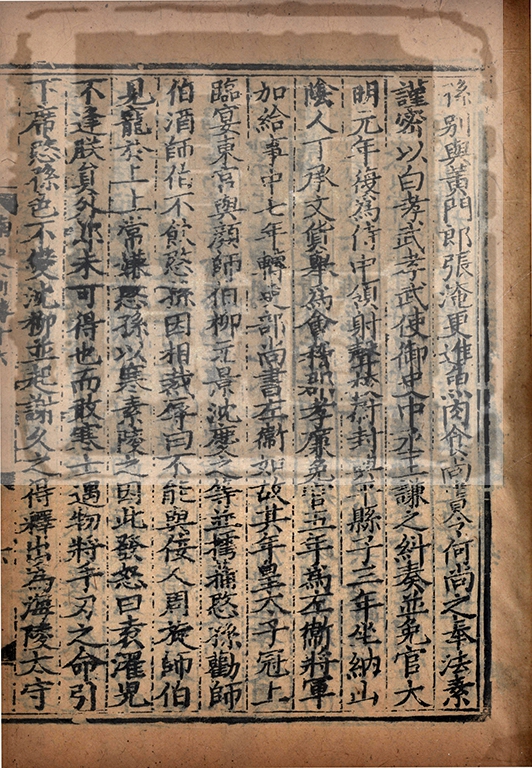 孫別與黃門郎張淹更進魚肉食尚書令何尚之奉法素
謹密以白孝武孝武使御史中丞王謙之糾奏並免官大
明元年復爲侍中領射聲校尉封興平縣子三年坐納山
陰人丁承文貨舉爲會稽郡孝廉免官五年爲左衞將軍
加給事中七年轉吏部尚書左衞如故其年皇太子冠上
臨宴東宮與顏師伯柳元景沈慶之等並摴蒱愍孫勸師
伯酒師伯不飲愍孫因相裁辱曰不能與佞人周旋師伯
見寵於上上常嫌愍孫以寒素陵之因此發怒曰袁濯兒
不逢朕員外郎未可得也而敢寒士遇物將手刃之命引
下席愍孫色不變沈柳並起謝久之得釋出為海陵太守